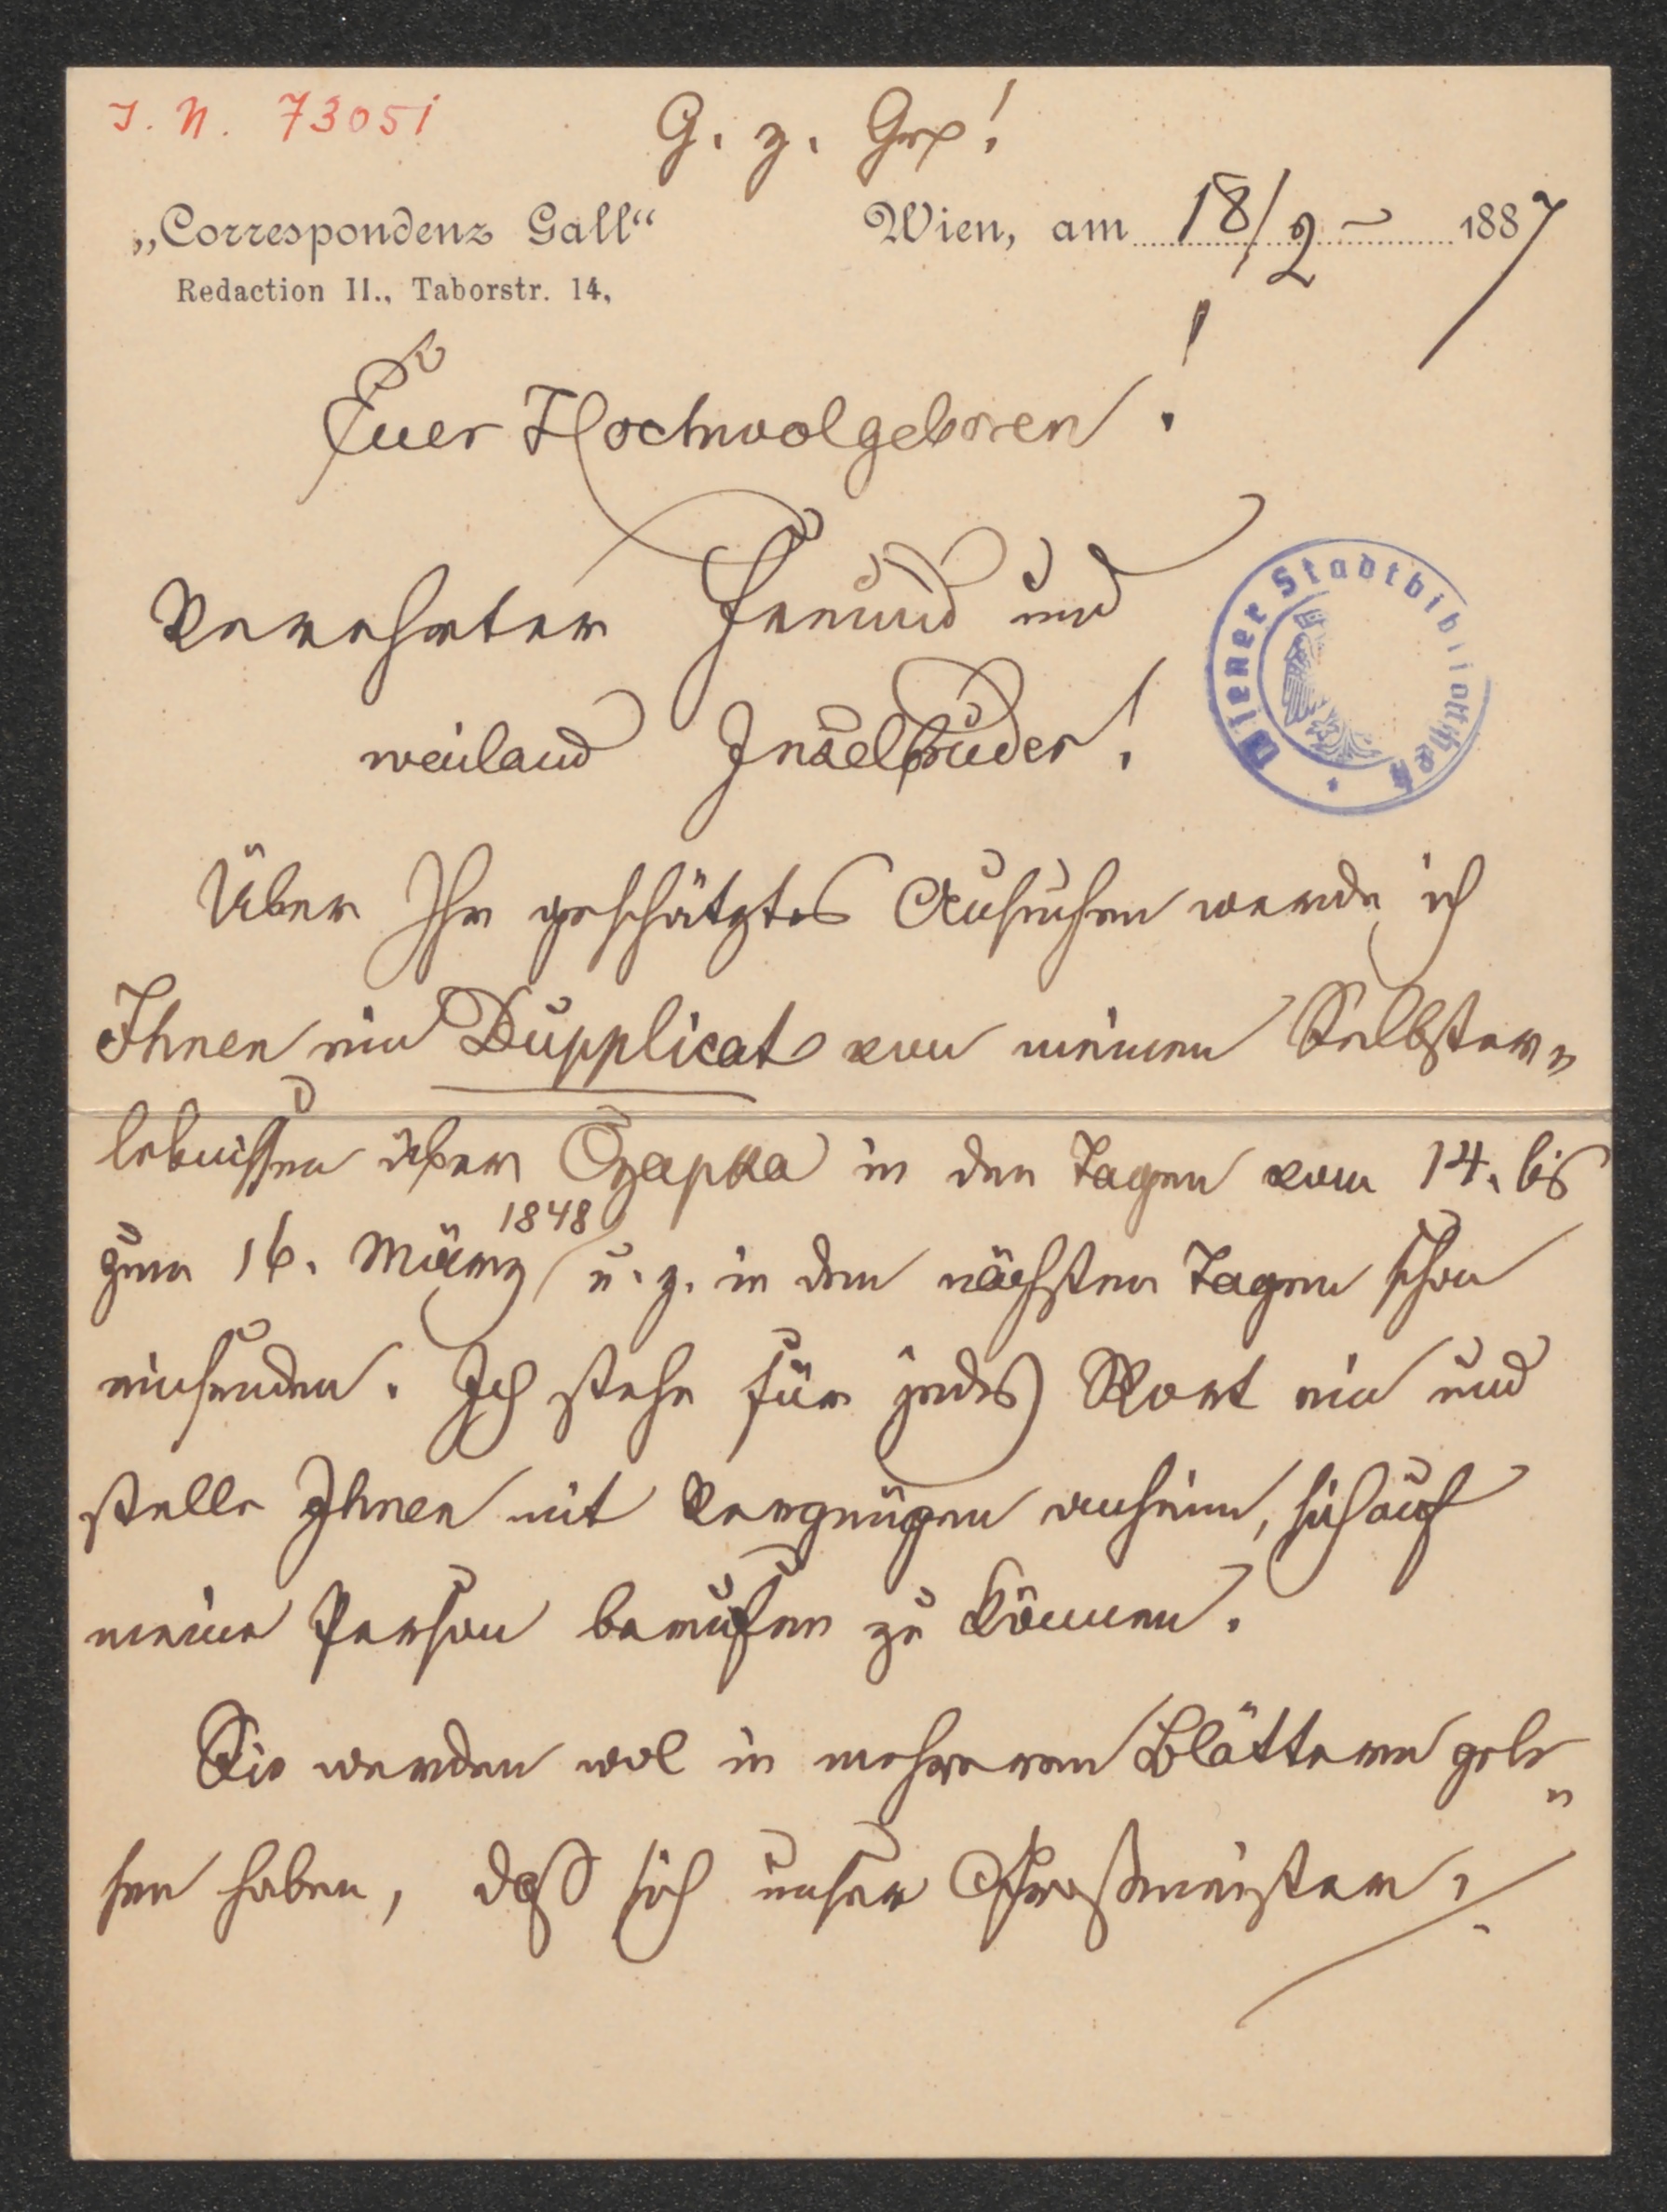 I. N. 73051
G. z. Grß!
„Correspondenz Gall“
Wien, am 18/2 – 1887
Redaction II., Taborstr. 14,
Euer Hochwolgeboren!
Verehrter Freund und
weiland Inselbruder!
Wiener Stadtbibliothek
Über Ihr geschätztes Ansuchen werde ich
Ihnen ein Dupplicat von meinen Selbster„
lebnissen über Czapka in den Tagen vom 14. bis
zum 16. März 1848 u. z. in den nächsten Tagen schon
einsenden. Ich stehe für jedes Wort ein und
stelle Ihnen mit Vergnügen anheim, sich auf
meine Person berufen zu können.
Sie werden wol in mehreren Blättern gele„
sen haben, daß sich unser Großmeister,